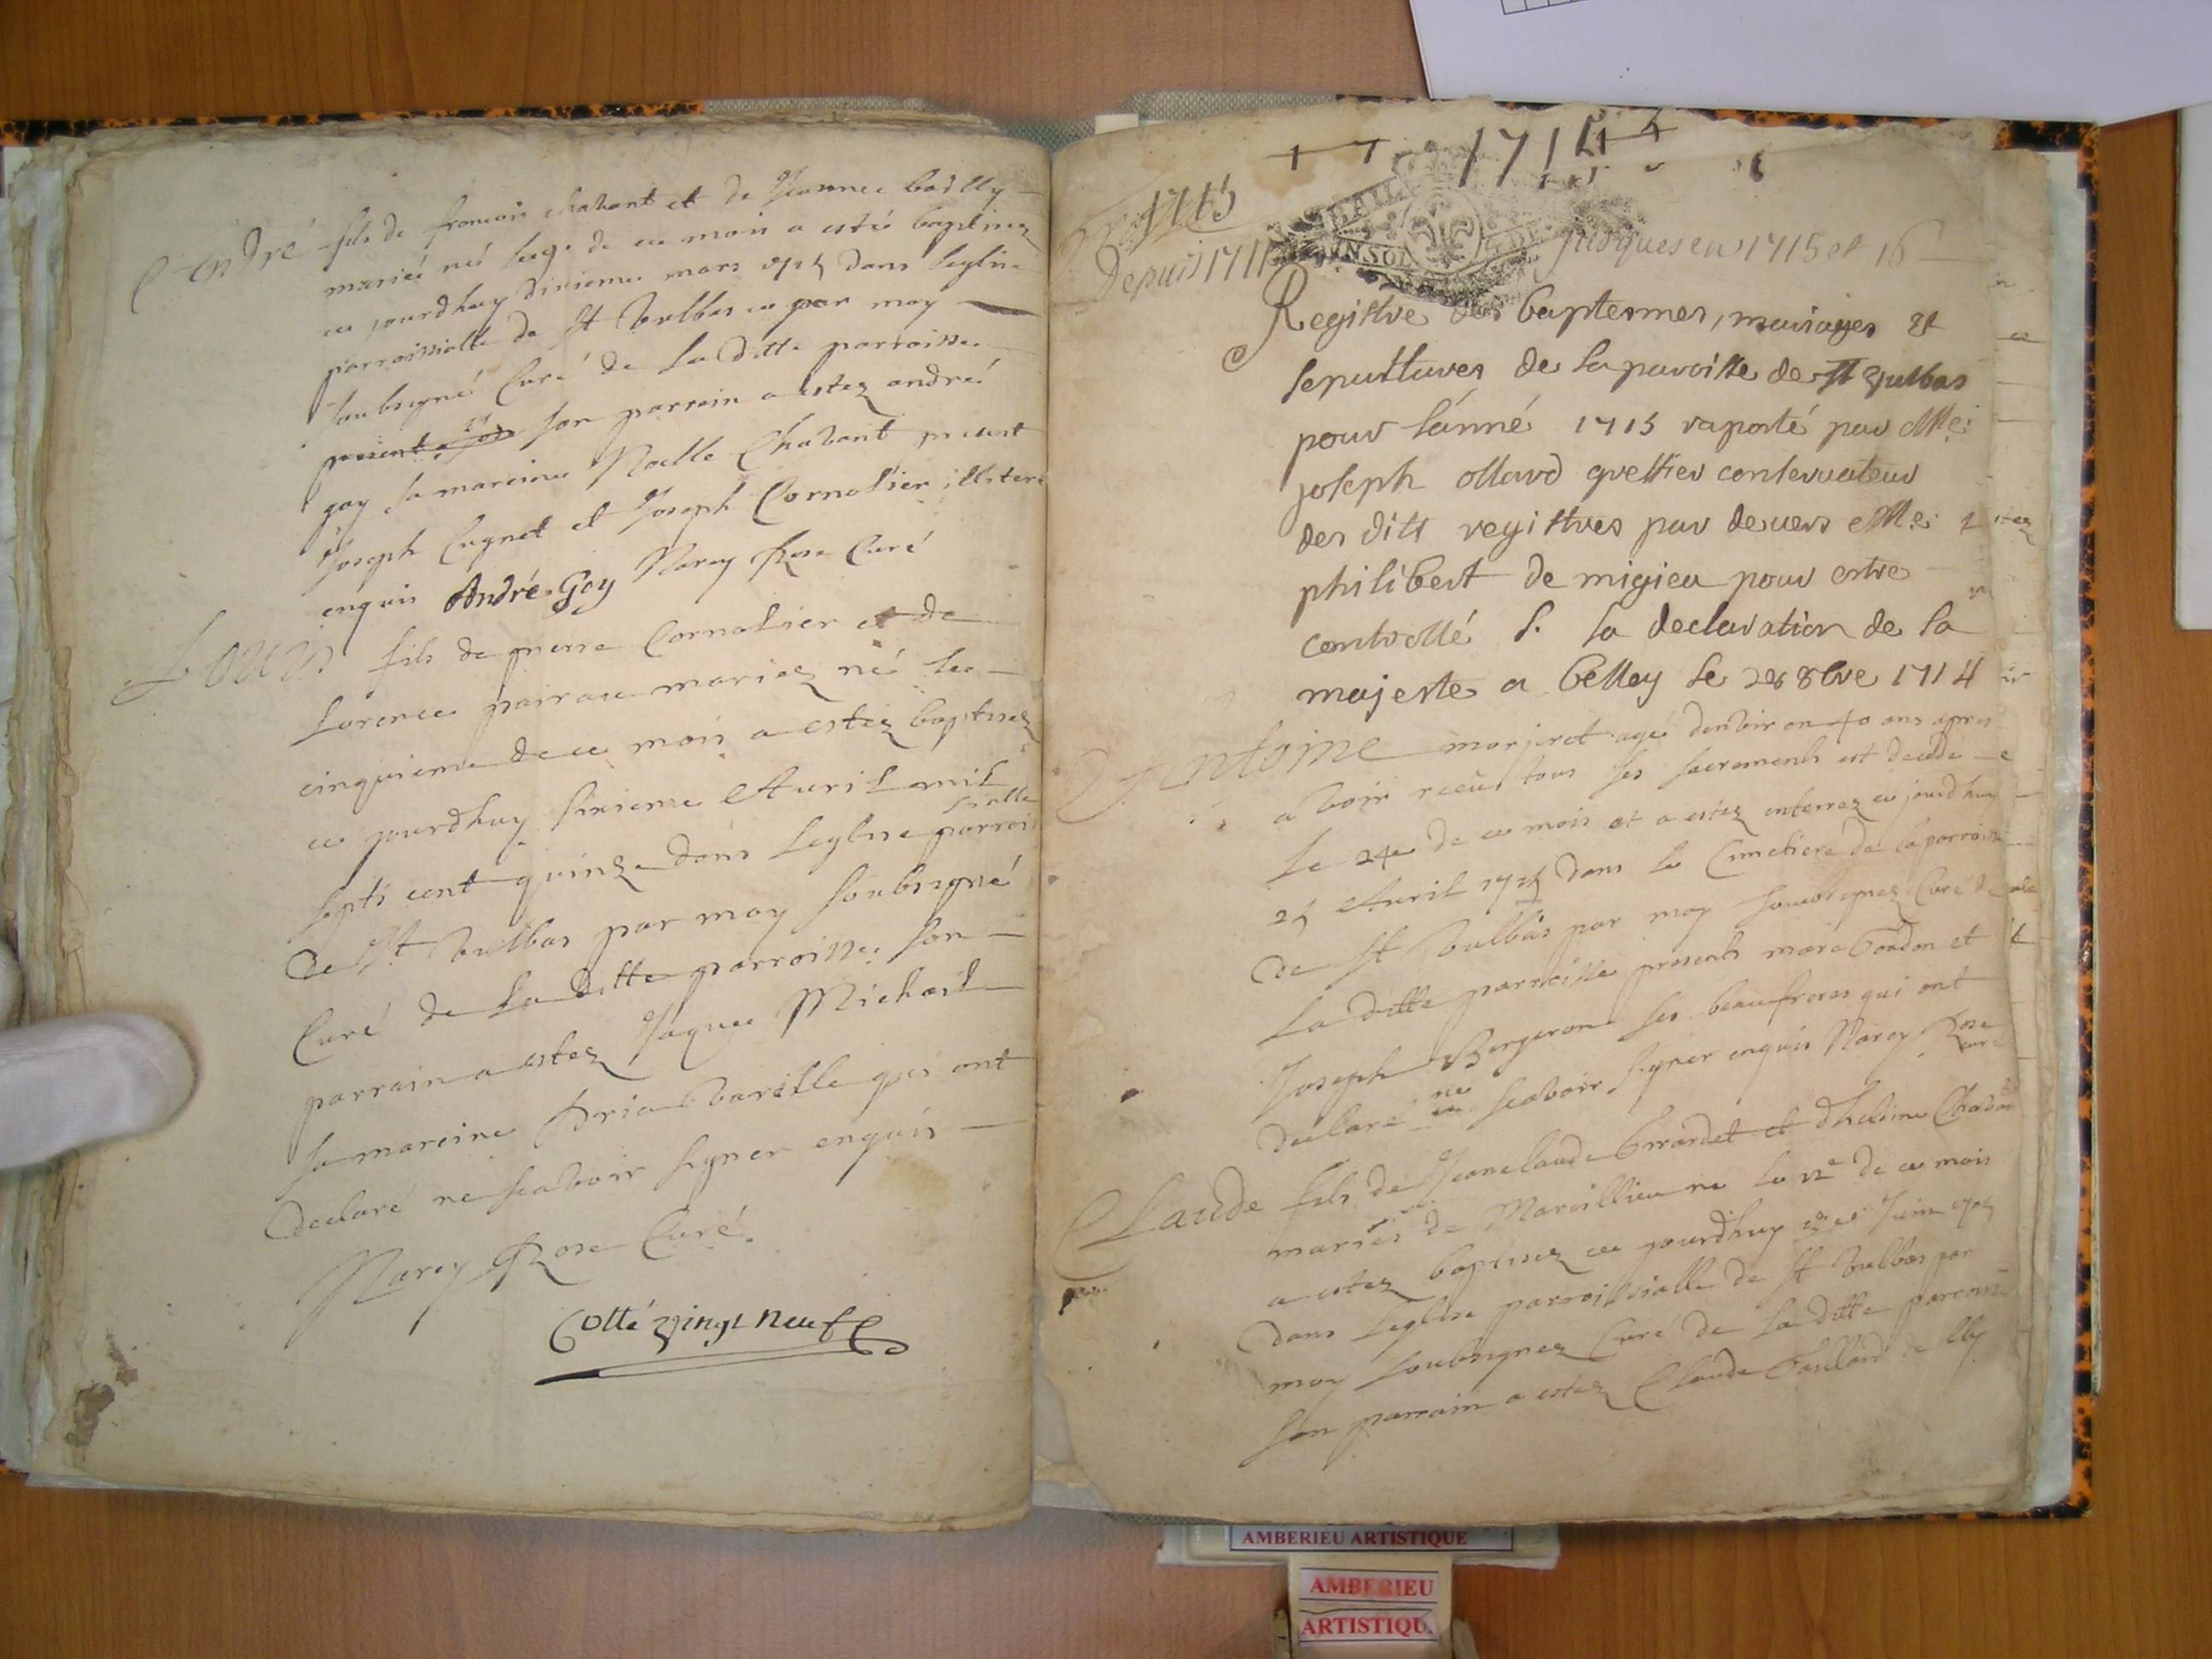 André fils de francois chavant et de Jeanne bailly
mariés né le 9e de ce mois a esté baptisez
ce jourdhuy dixieme mars 1715 dans leglise
parroissialle de St Vulbas par moy
soubsigné Curé de la ditte parroisse
son parrain a estez andré
goy sa mareine Noelle Chavant present
Joseph Cugnet et Joseph Cornolier illiteré
enquis André Goy Narcy Rose Curé
Louis fils de pierre Cornolier et de
Lorence pairau mariez né le
cinquieme de ce mois a estez baptisez
ce jourdhuy sixieme Avril mil
septs cent quinze dans Leglise parroi
sialle
de St Vulbas par moy soubsigné
Curé de la ditte parroisse son
parrain a estez Jaque Michail
sa mareine Varille qui ont
declaré ne scavoir signer enquis
Narcy Rose Curé
Cotté vingt neuf
1714
1715
Depuis 1711 jusques en 1715 et 16
Registre des baptesmes, mariages et
sepultures de la paroisse de St Vulbas
pour lánné 1715 raporté par Me
joseph ollard greffier conservateur
des dits registres par devers Me
philibert de migieu pour estre
controllé s. la declaration de sa
majeste a belley le 28 8bre 1714
Antoine morjeret agé denviron 40 ans apres
avoir receu tous ses sacrements est decedé
le 24e de ce mois et a estez enterrez ce jourdhuy
25 Avril 1715 dans le Cimetiere de la parroisse
de St Vulbas par moy soubsignez Curé de
la ditte parroisse presents Bordon et
Joseph Bergeron ses beaufreres qui ont
declaré ne scavoir signer enquis Narcy Rose
curé
Claude fils de Jeanclaude Girardet et dhelaine
mariés de Marcillieu né le 12e de ce mois
a estez baptisez ce jourdhuy Juin 1715
dans Leglise parroissialle de St Vulbas par
moy soubsignez Curé de la ditte parroisse
son parrain a estez Claude
AMBERIEU ARTISTIQUE
AMBERIEU
ARTISTIQU